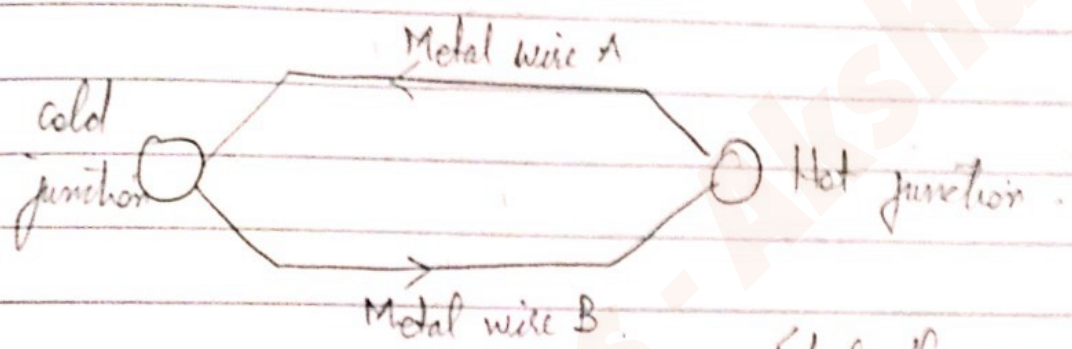 Metal wire A
cold
junction
Hot junction.
Metal wire B